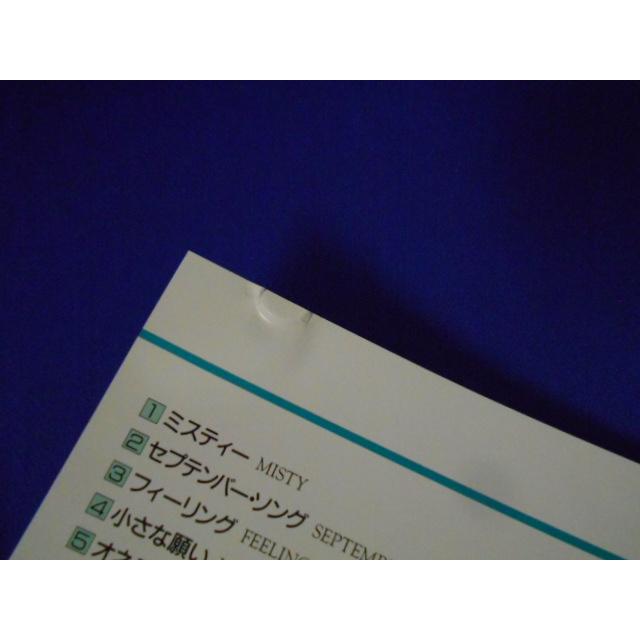 1 ミスティー MISTY
2 セプテンバー・ソング
3 フィーリング
4 小さな願い
5